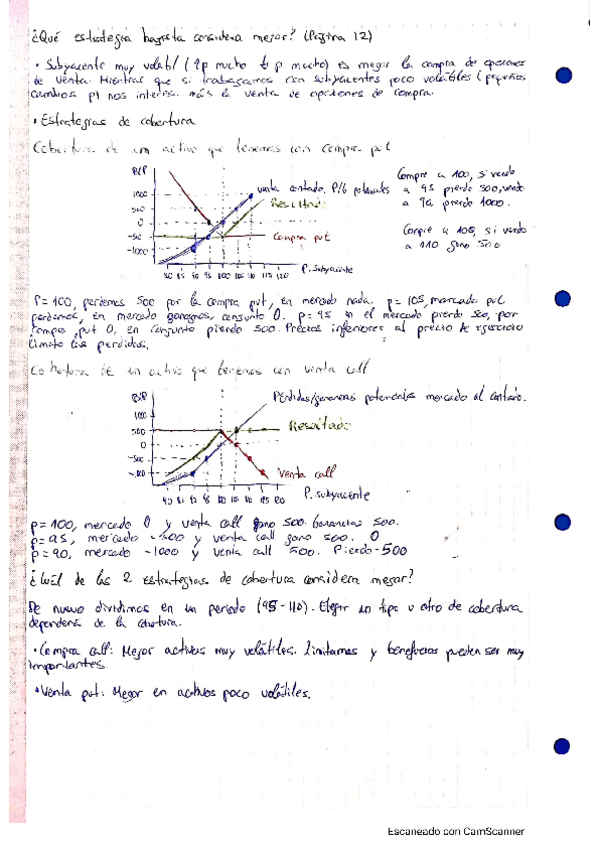 ¿Qué estrategia bajista considera mejor? (Página 12)
• Subyacente muy volátil (↑p mucho ↓p mucho) es mejor la compra de opciones
de venta. Mientras que si trabajamos con subyacentes poco volátiles (pequeños
cambios p) nos interesa más la venta de opciones de compra.
• Estrategias de cobertura
Cobertura de un activo que tenemos con compra put
B/P
1000
500
0
-500
-1000
venta contado. P/G potenciales
Resultado
Compra put
P. Subyacente
Compre a 100, si vendo
a 95 pierdo 500, vendo
a 90, pierdo 1000.
Compre a 100, si vendo
a 110 gano 500
P=100, perdemos 500 por la compra put, en mercado nada. p=105, mercado put
perdemos, en mercado ganamos, conjunto 0. p=95 en el mercado pierdo 500, por
compra put 0, en conjunto pierdo 500. Precios inferiores al precio de ejercicio
limito las perdidas.
Cobertura de un activo que tenemos con venta call
B/P
1000
500
0
-500
-1000
Pérdidas/ganancias potenciales mercado al contado.
Resultado
Venta call
P. subyacente
p=100, mercado 0 y venta call gano 500. Ganancias 500.
p=95, mercado -500 y venta call gano 500. 0
p=90, mercado -1000 y venta call 500. Pierdo -500
¿Cuál de las 2 estrategias de cobertura considera mejor?
De nuevo dividimos en un periodo (95-110). Elegir un tipo u otro de cobertura
dependerá de la
• Compra call: Mejor activos muy volátiles. limitamos y beneficios pueden ser muy
importantes.
• Venta put: Mejor en activos poco volátiles.
Escaneado con CamScanner